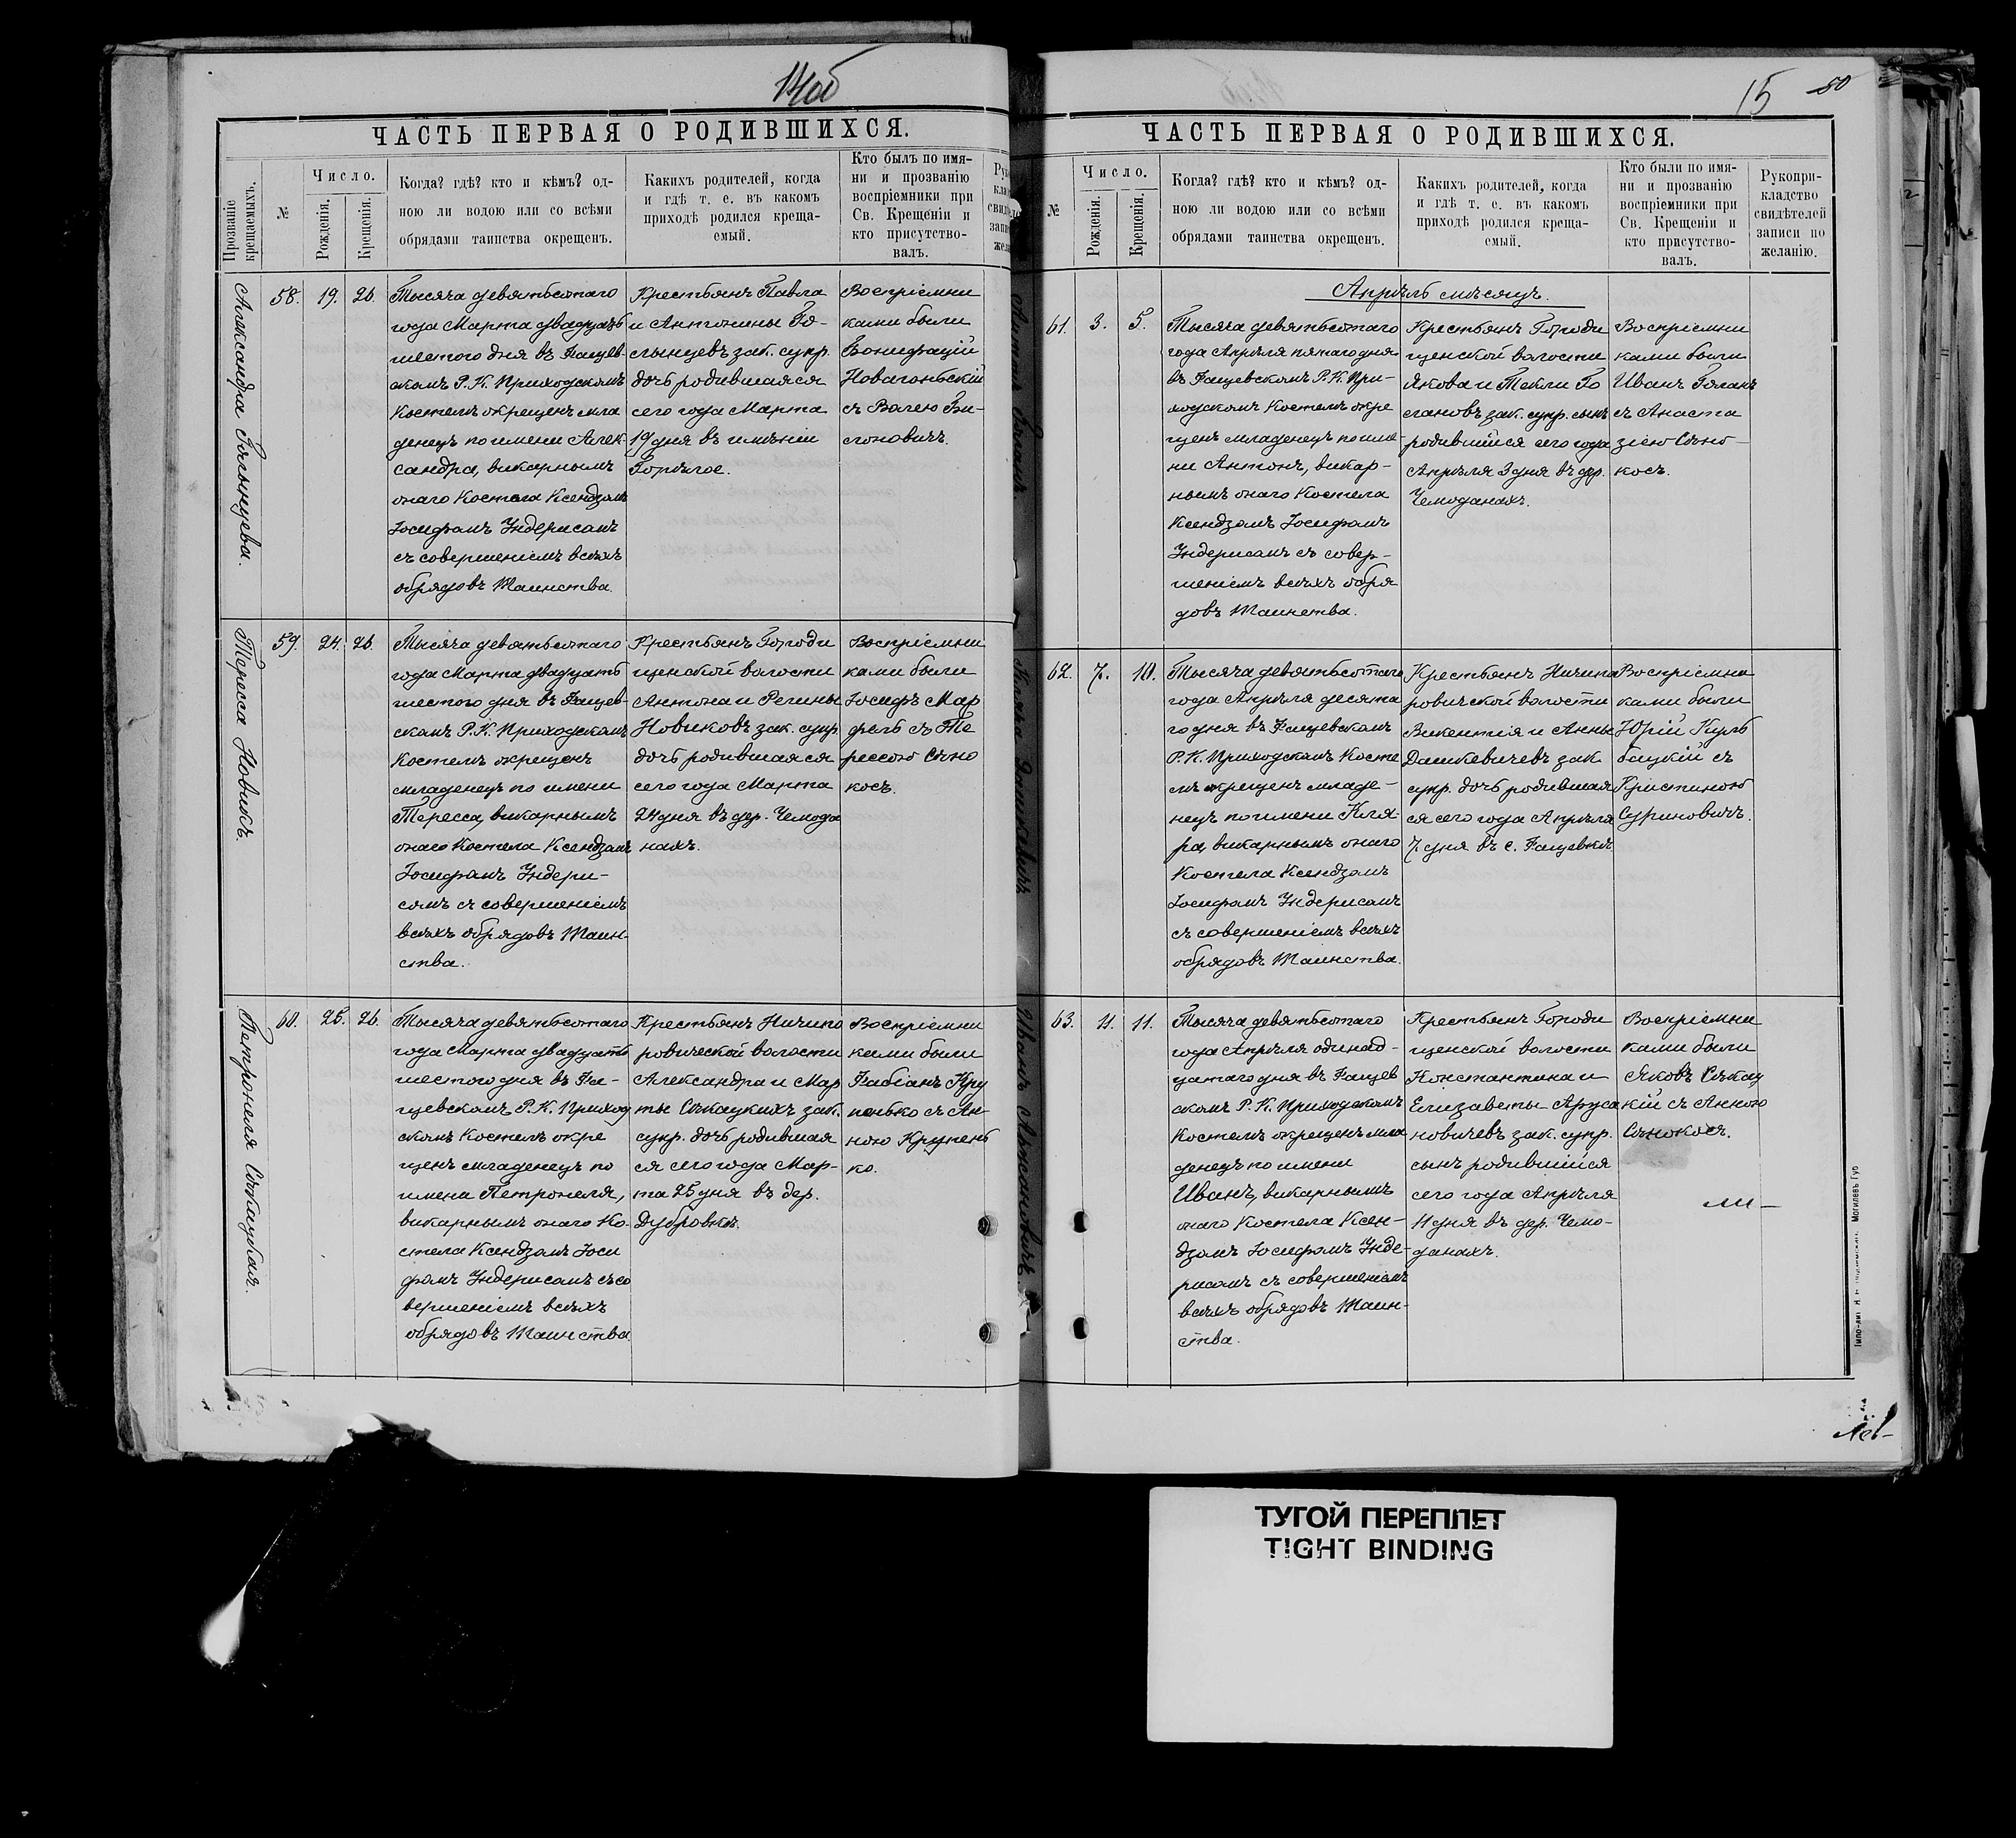 14об
ЧАСТЬ ПЕРВАЯ О РОДИВШИХСЯ.
Прозваніе
крещаемыхъ.
№
Число.
Рожденія.
Крещенія.
Когда? гдѣ? кто и кѣмъ? од-
ною ли водою или со всѣми
обрядами таинства окрещенъ.
Какихъ родителей, когда
и гдѣ т. е. въ какомъ
приходѣ родился креща-
емый.
Кто былъ по имя-
ни и прозванію
воспріемники при
Св. Крещеніи и
кто присутство-
валъ.
Александра Голынцева.
58.
19.
26.
Тысяча девятьсотаго
года Марта двадцать
шестого дня въ Фащев-
скомъ Р. К. Приходскомъ
Костелѣ окрещенъ мла
денецъ по имени Алек-
сандра, викарнымъ
онаго Костела Ксендзомъ
Іосифомъ Индерисомъ
съ совершеніемъ всѣхъ
обрядовъ Таинства.
Крестьянъ Павла
и Антонины Го-
лынцевъ зак. супр.
дочь родившаяся
сего года Марта
19 дня въ имѣніи
Горѣлое.
Воспріемни
ками были
Бонифацій
Новагоньскій
съ
59.
24.
26.
Тересса Новикъ.
Тысяча девятьсотаго
года Марта двадцать
шестого дня въ Фащев-
скомъ Р. К. Приходскомъ
Костелѣ окрещенъ
младенецъ по имени
Тересса, викарнымъ
онаго Костела Ксендзомъ
Іосифомъ Индери-
сомъ съ совершеніемъ
всѣхъ обрядовъ Таин-
ства.
Крестьянъ Городи
щенской волости
Антона и Регины
Новиковъ зак. супр.
дочь родившаяся
сего года Марта
24 дня въ дер. Чемода
нахъ.
Воспріемни
ками были
Іосифъ Мар
фель съ Те
рессою Сѣно
косъ.
Петронеля Сѣкацкая.
60.
25.
26.
Тысяча девятьсотаго
года Марта двадцать
шестого дня въ Фа-
щевскомъ Р. К. Приход
скомъ Костелѣ окре
щенъ младенецъ по
имени Петронеля,
викарнымъ онаго Ко-
стела Ксендзомъ Іоси
фомъ Индерисомъ съ со
вершеніемъ всѣхъ
обрядовъ Таинства.
Крестьянъ Ничипо
ровической волости
Александра и Мар
ты Сѣкацкихъ зак.
супр. дочь родившая
ся сего года Мар-
та 25 дня въ дер.
Дубровкѣ.
Воспріемни
ками были
Фабіанъ Кру
пенько съ Ан-
ною Крупень
ко.
15
50
ЧАСТЬ ПЕРВАЯ О РОДИВШИХСЯ.
№
Число.
Рожденія.
Крещенія.
Когда? гдѣ? кто и кѣмъ? од-
ною ли водою или со всѣми
обрядами таинства окрещенъ.
Какихъ родителей, когда
и гдѣ т. е. въ какомъ
приходѣ родился креща-
емый.
Кто были по имя-
ни и прозванію
воспріемники при
Св. Крещеніи и
кто присутство-
валъ.
Рукопри-
кладство
свидѣтелей
записи по
желанію.
Апрѣль мѣсяцъ.
61.
3.
5.
Тысяча девятьсотаго
года Апрѣля пятаго дня
въ Фащевскомъ Р. К. При-
ходскомъ Костелѣ окре
щенъ младенецъ по име-
ни Антонъ, викар-
нымъ онаго Костела
Ксендзомъ Іосифомъ
Индерисомъ съ совер-
шеніемъ всѣхъ обря
довъ Таинства.
Крестьянъ Городи
щенской волости
Якова и Текли Го
родившійся сего года
Апрѣля 3 дня въ дер.
Чемоданахъ.
Воспріемни
ками были
Иванъ
съ Анаста
зіею Сѣно-
косъ.
62.
7.
10.
Тысяча девятьсотаго
года Апрѣля десята
го дня въ Фащевскомъ
Р. К. Приходскомъ Косте
лѣ окрещенъ младе-
нецъ по имени Кля-
ра, викарнымъ онаго
Костела Ксендзомъ
Іосифомъ Индерисомъ
съ совершеніемъ всѣхъ
обрядовъ Таинства.
Крестьянъ Ничипо
ровической волости
Викентія и Анны
Дашкевичевъ зак.
супр. дочь родившая
ся сего года Апрѣля
7. дня въ с. Фащевкѣ.
Воспріемни
ками были
Юрій Куль
бацкій съ
Кристиною
Суриновичъ.
63.
11.
11.
Тысяча девятьсотаго
года Апрѣля одинад-
цатаго дня въ Фащев
скомъ Р. К. Приходскомъ
Костелѣ окрещенъ мла
денецъ по имени
Иванъ, викарнымъ
онаго Костела Ксен-
дзомъ Іосифомъ Инде-
рисомъ съ совершеніемъ
всѣхъ обрядовъ Таин-
ства.
Крестьянъ Городи
щенской волости
Константина и
Елизаветы Аруса
новичевъ зак. супр.
сынъ родившійся
сего года Апрѣля
11 дня въ дер. Чемо-
данахъ.
Воспріемни
ками были
Яковъ Сѣкац
кій съ Анною
Сѣнокосъ.
ТУГОЙ ПЕРЕПЛЕТ
TIGHT BINDING